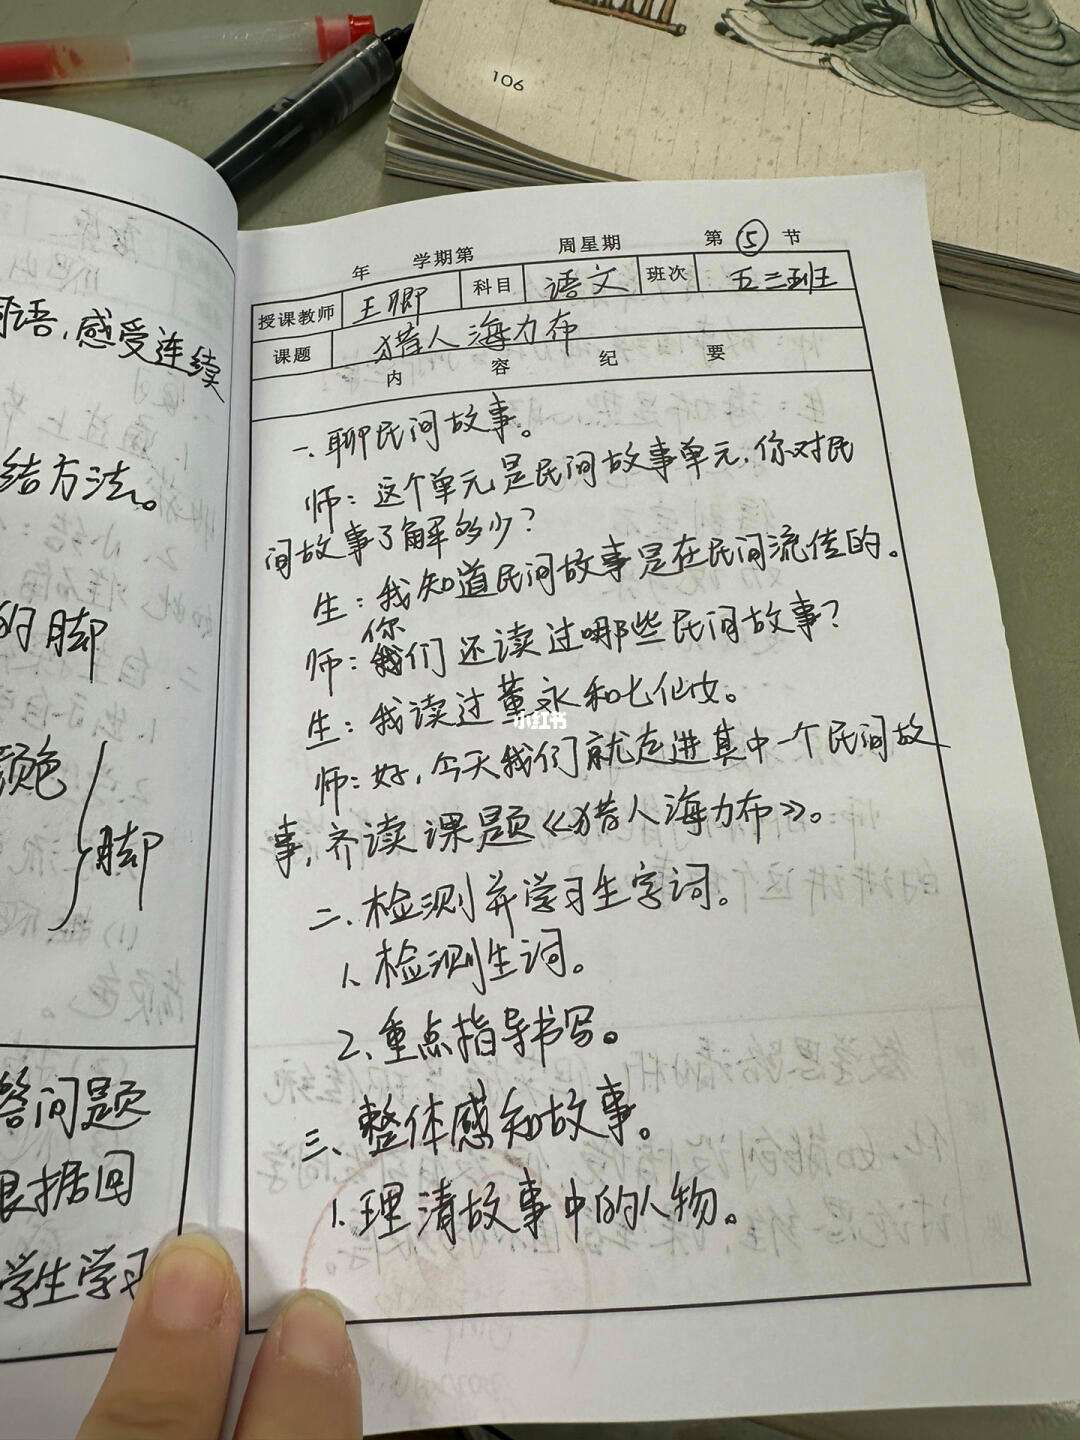 106
词语，感受连续
结方法。
的脚
颜色
脚
答问题
根据回
学生学习
年 学期第 周星期 第 5 节
授课教师 王卿 科目 语文 班次 五三班
课题 猎人海力布
内容纪要
一、聊民间故事。
师：这个单元是民间故事单元，你对民
间故事了解多少？
生：我知道民间故事是在民间流传的。
你
师：我们还读过哪些民间故事？
生：我读过董永和七仙女。
小红书
师：好，今天我们就走进其中一个民间故
事，齐读课题《猎人海力布》。
二、检测并学习生字词。
1、检测生词。
2、重点指导书写。
三、整体感知故事。
1、理清故事中的人物。